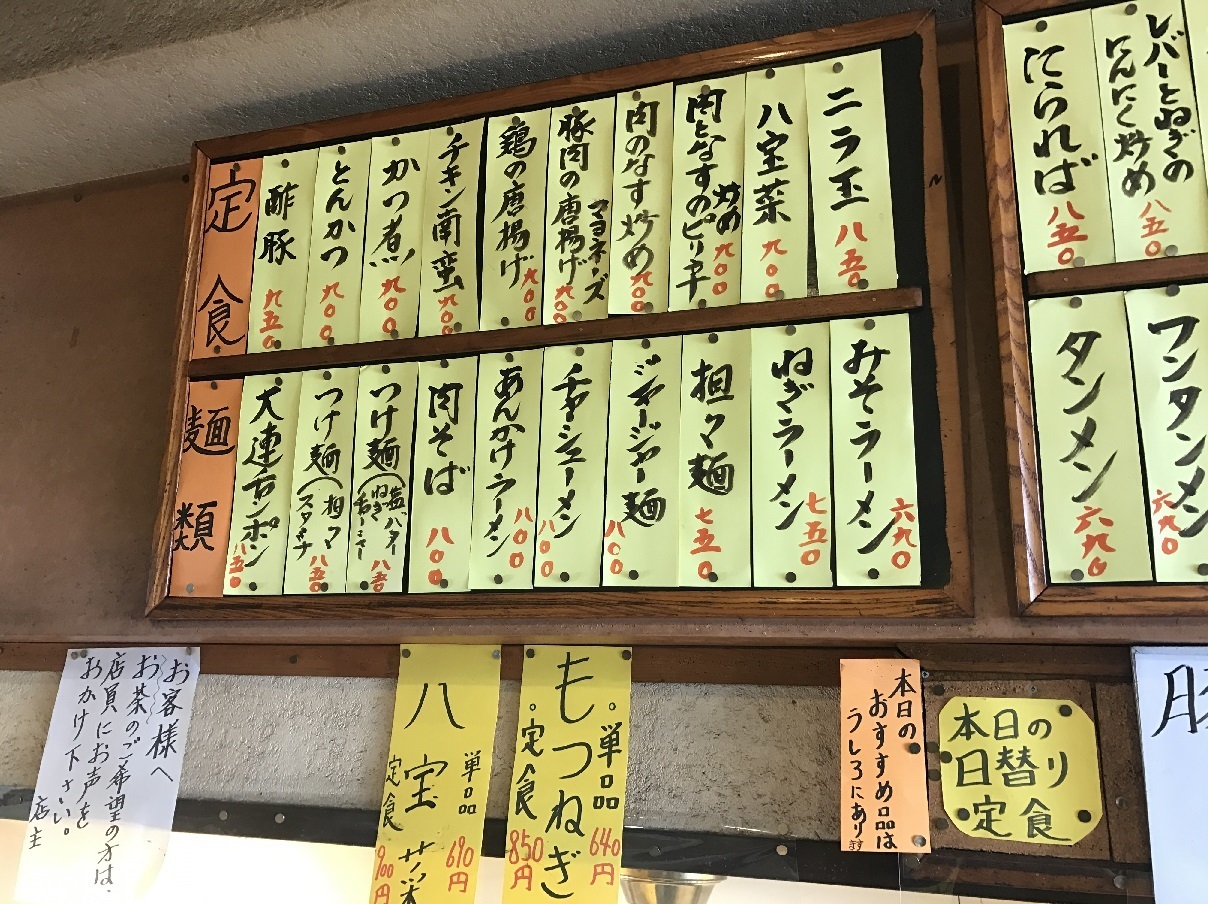 レバーとねぎの
にんにく炒め
八五〇
にられば
八五〇
ニラ玉
八五〇
八宝菜
九〇〇
肉となすのピリ辛
炒め
九〇〇
肉のなす炒め
九〇〇
豚肉の唐揚げ
マヨネーズ
九〇〇
鶏の唐揚げ
九〇〇
チキン南蛮
九〇〇
かつ煮
九〇〇
とんかつ
九〇〇
酢豚
九五〇
定食
ワンタンメン
六九〇
タンメン
六九〇
みそラーメン
六九〇
ねぎラーメン
七五〇
担々麺
七五〇
ジャージャー麺
八〇〇
チャーシューメン
八〇〇
あんかけラーメン
八〇〇
肉そば
八〇〇
つけ麺
塩、バター
ねぎ
チャーシュー
八五〇
つけ麺(担々
スタミナ
八五〇
大連チャンポン
八五〇
麺類
お客様へ
お茶のご希望の方は、
店員にお声を
おかけ下さい。
店主
八宝菜
単品
690円
定食
900円
もつねぎ
・単品
640円
・定食
850円
本日の
おすすめ品は
うしろにあります
本日の
日替り
定食